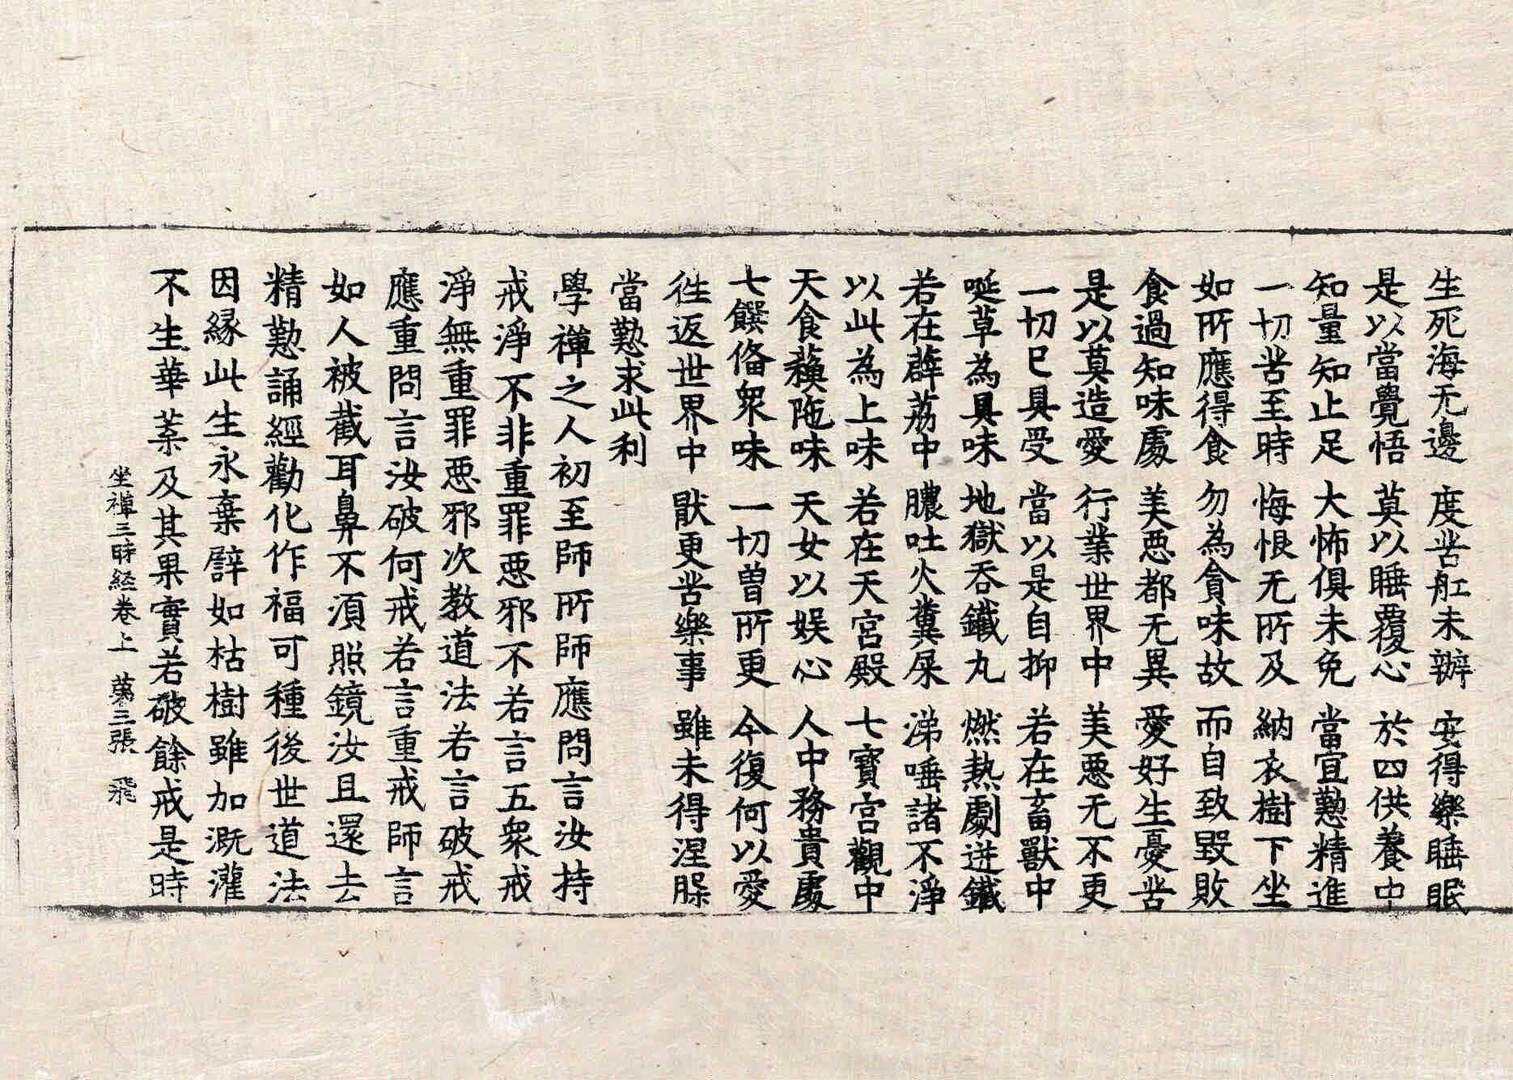 生死海无邊　度苦舡未辦　安得樂睡眠
是以當覺悟　莫以睡覆心　於四供養中
知量知止足　大怖俱未免　當宜懃精進
一切苦至時　悔恨无所及　納衣樹下坐
如所應得食　勿為貪味故　而自致毀敗
食過知味處　美惡都无異　愛好生憂苦
是以莫造愛　行業世界中　美惡无不更
一切已具受　當以是自抑　若在畜獸中
唌草為具味　地獄吞鐵丸　燃熱劇迸鐵
若在薜荔中　膿吐火糞屎　涕唾諸不淨
以此為上味　若在天宮殿　七寶宮觀中
天食蘇陁味　天女以娛心　人中務貴處
七饌俻衆味　一切曽所更　今復何以愛
徃返世界中　猒更苦樂事　雖未得涅槃
當懃求此利
學禪之人初至師所師應問言汝持
戒淨不非重罪惡邪不若言五衆戒
淨無重罪惡邪次教道法若言破戒
應重問言汝破何戒若言重戒師言
如人被截耳鼻不湏照鏡汝且還去
精懃誦經勸化作福可種後世道法
因緣此生永棄譬如枯樹雖加溉灌
不生華葉及其果實若破餘戒是時
坐禪三昧経卷上　苐三張　飛